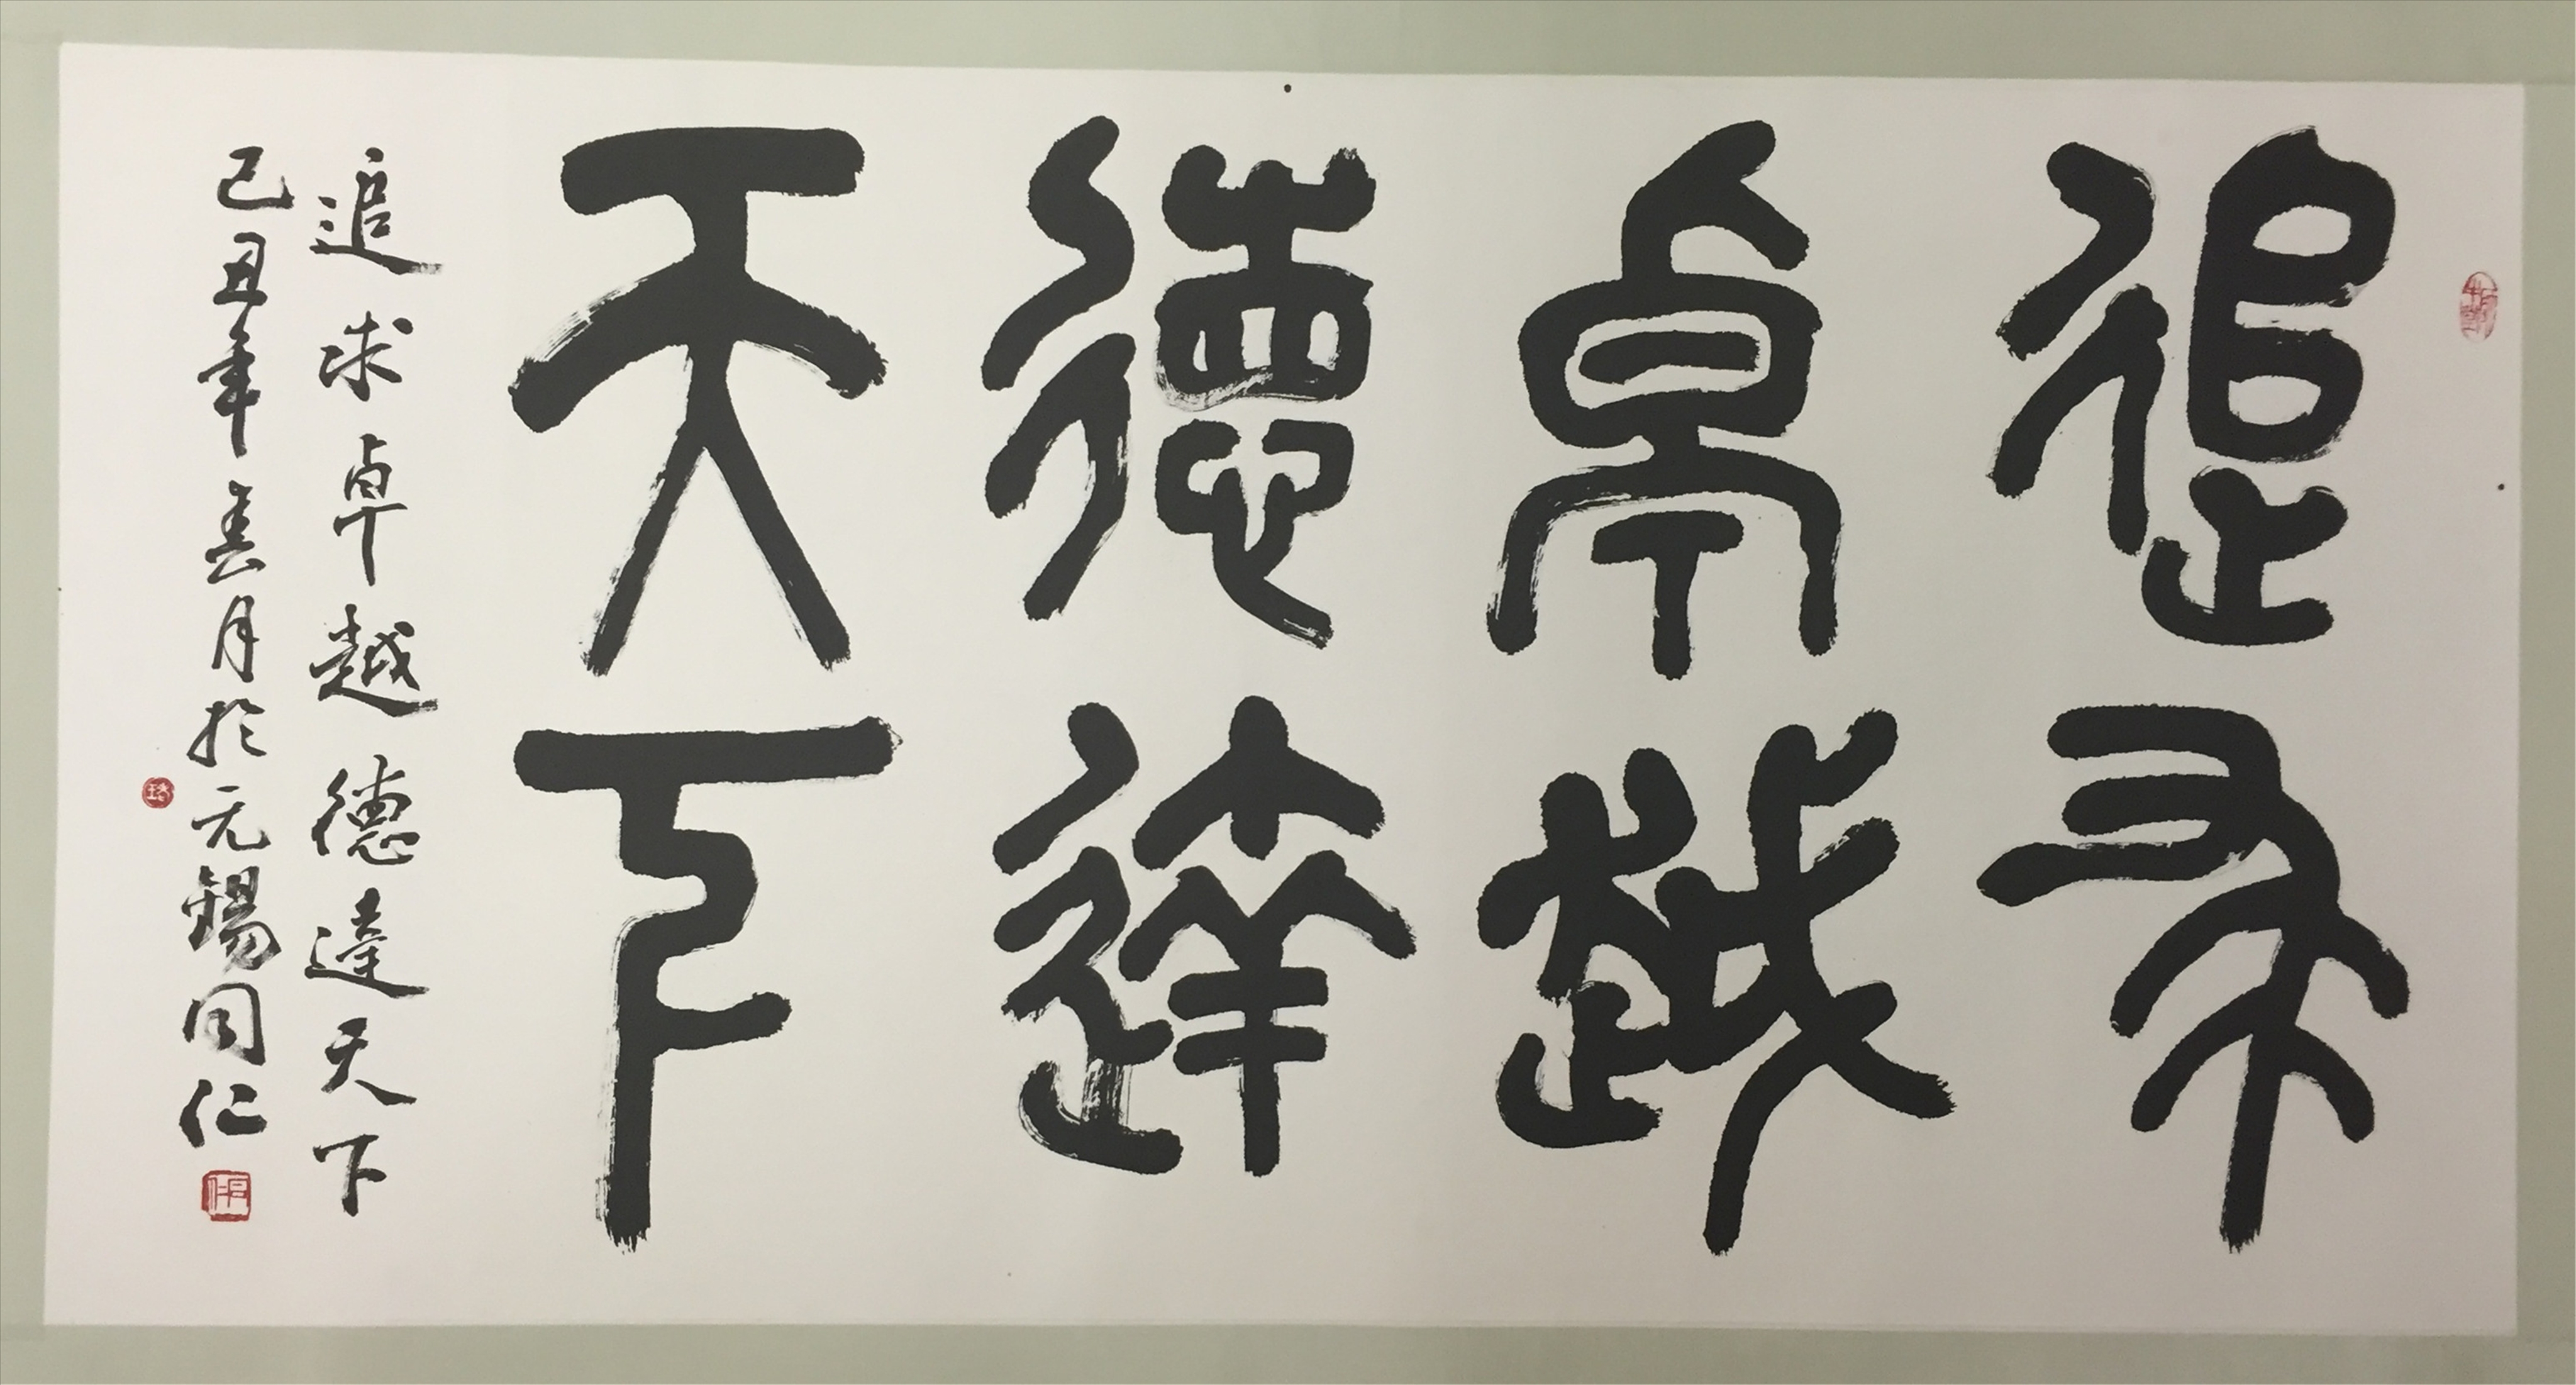 追求
卓越
德達
天下
追求卓越德達天下
己丑年春月於无锡同仁